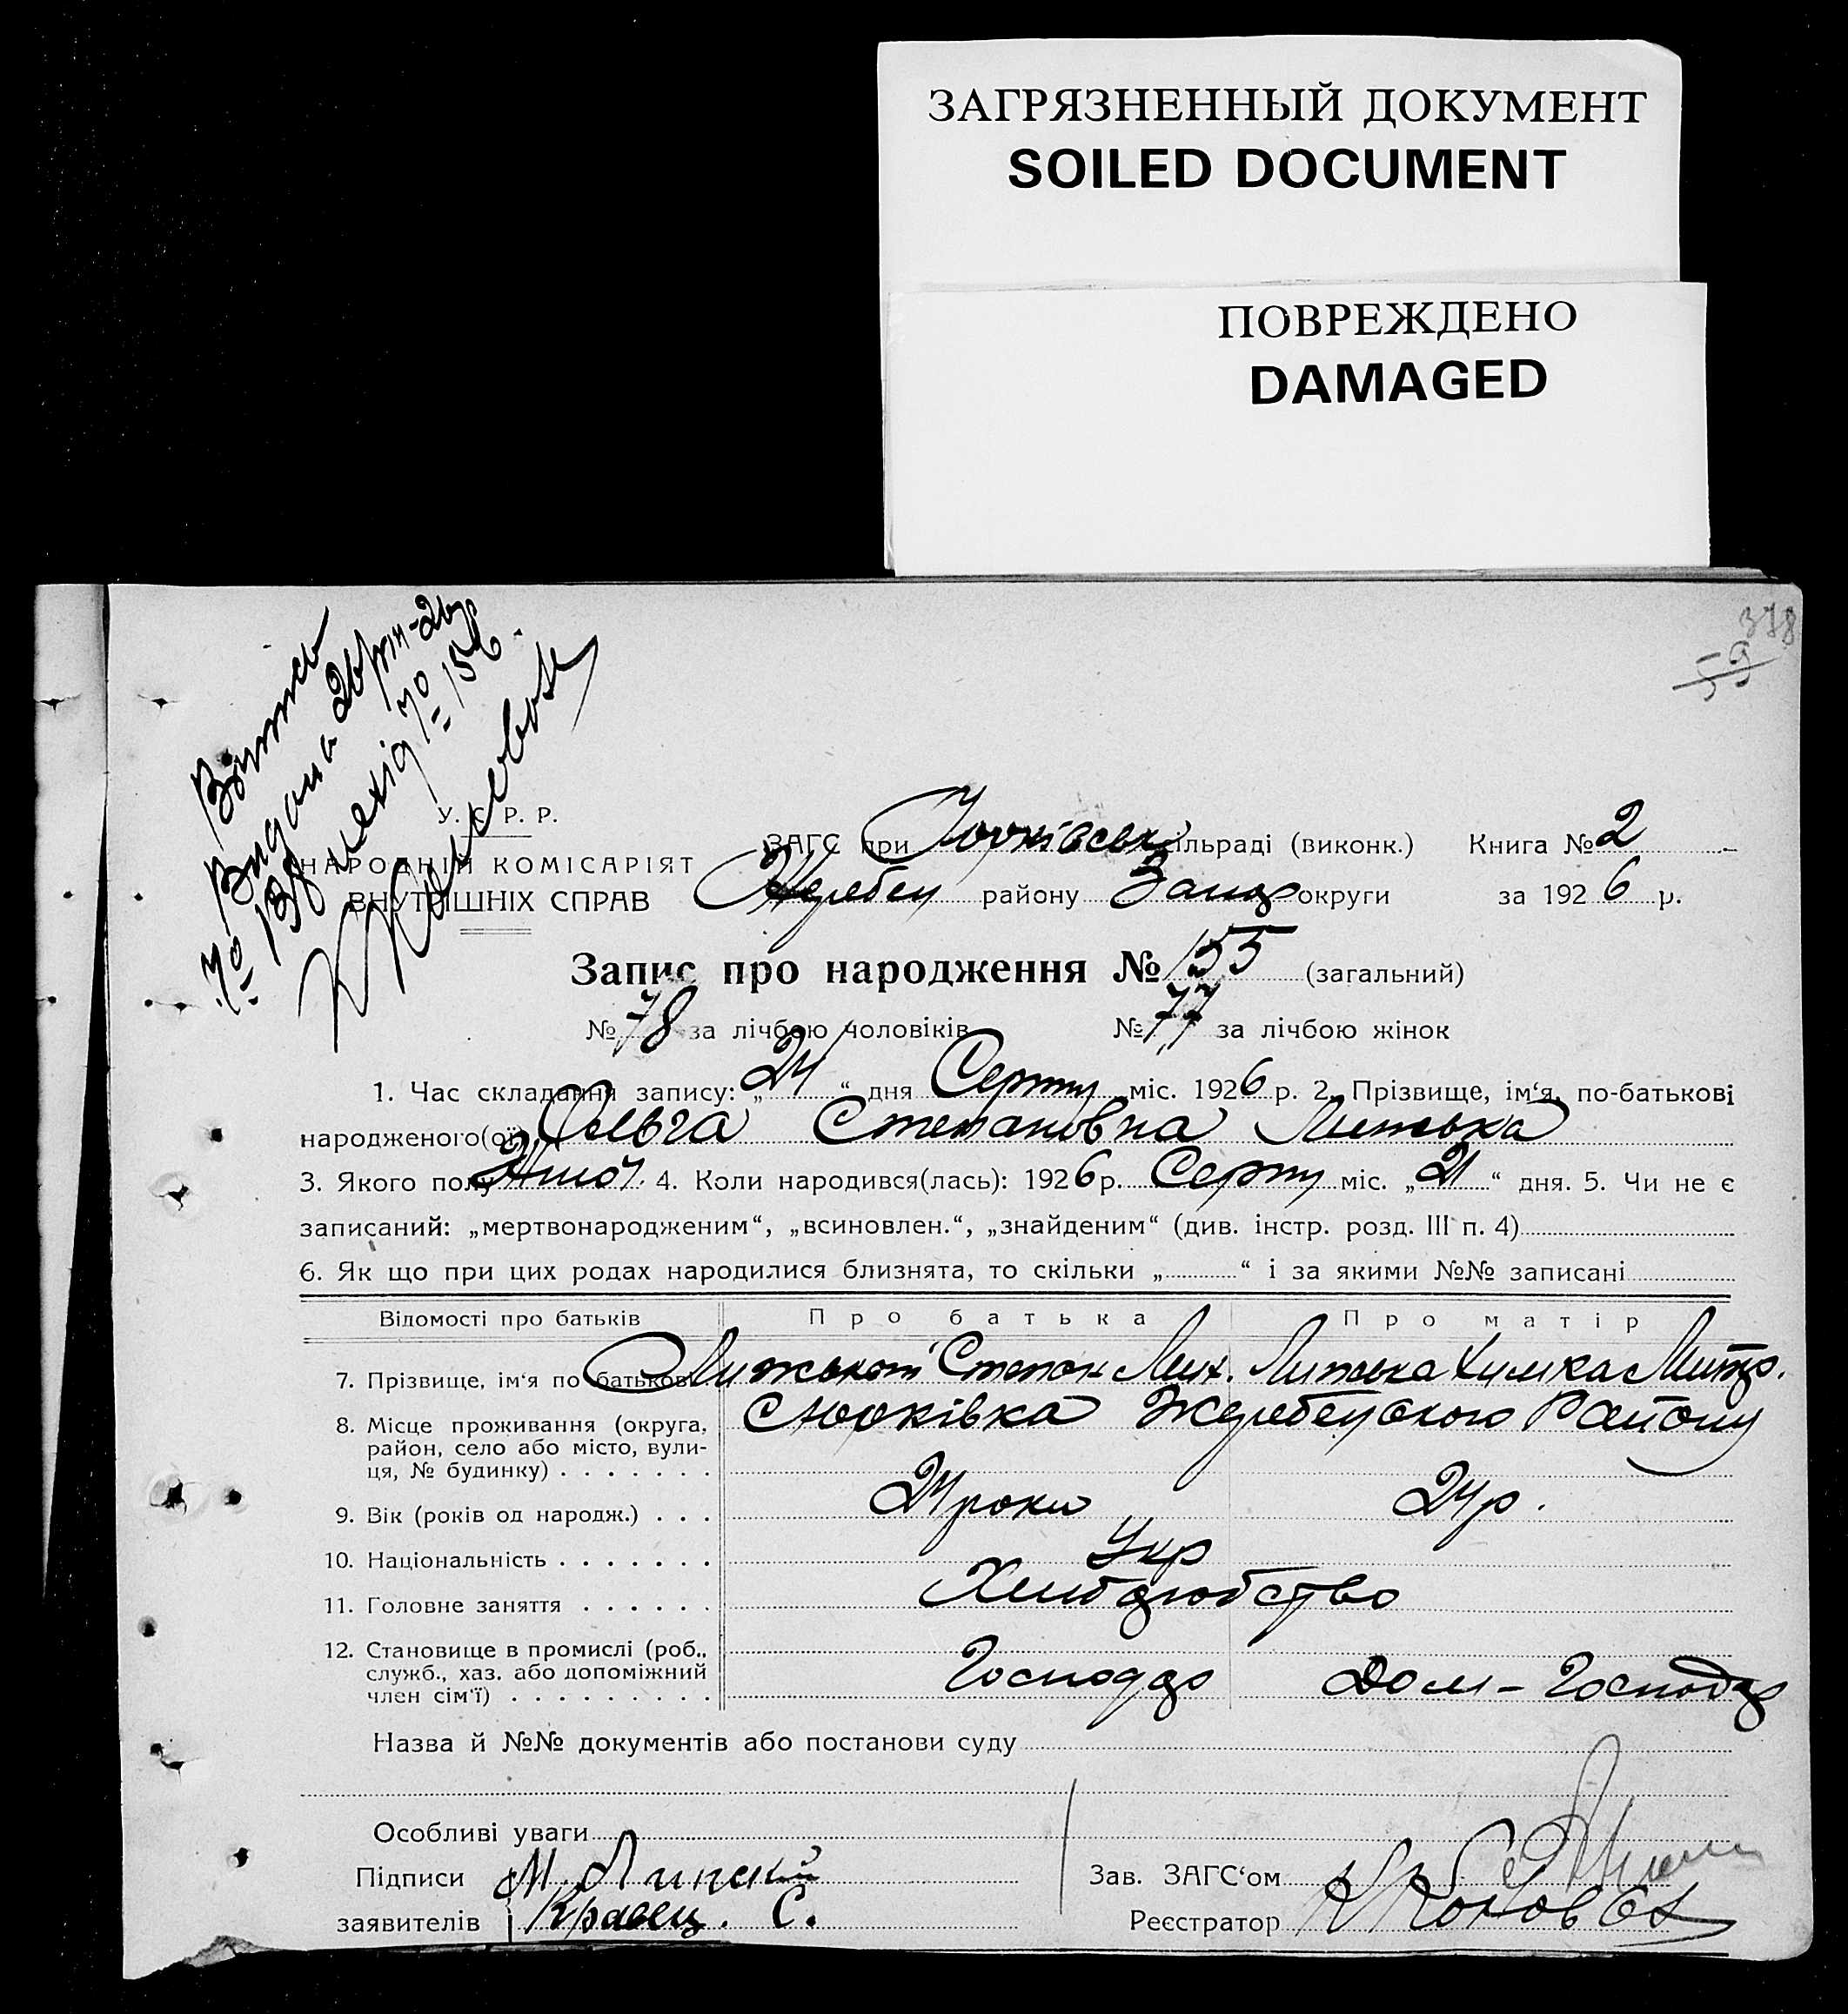 ЗАГРЯЗНЕННЫЙ ДОКУМЕНТ
SOILED DOCUMENT
ПОВРЕЖДЕНО
DAMAGED
378
59
Видана
№ 138 № 156
У. С. Р. Р.
НАРОДНІЙ КОМІСАРІЯТ
ВНУТРІШНІХ СПРАВ
ЗАГС при Юрківськ ільраді (виконк.) Книга № 2
Жеребец району Запор округи за 1926 р.
Запис про народження № 155 (загальний)
№ 78 за лічбою чоловіків № 77 за лічбою жінок
1. Час складання запису: „24“ дня Серпн міс. 1926 р. 2. Прізвище, ім‘я, по-батькові
народженого(ої) Ольга Степановна Липська
3. Якого полу Жіно. 4. Коли народився(лась): 1926 р. Серпн міс. „21“ дня. 5. Чи не є
записаний: „мертвонародженим“, „всиновлен.“, „знайденим“ (див. інстр. розд. III п. 4)
6. Як що при цих родах народилися близнята, то скільки „ “ і за якими №№ записані
Відомості про батьків Про батька Про матір
7. Прізвище, ім‘я по батькові Степан Мих. Липська Химка Митр.
8. Місце проживання (округа, с Юрківка Жеребецького Району
район, село або місто, вули-
ця, № будинку)
9. Вік (років од народж.) 24 роки 24 р.
10. Національність Укр
11. Головне заняття Хліборобство
12. Становище в промислі (роб.,
служб., хаз. або допоміжний Господар Дом-Господар
член сім‘ї)
Назва й №№ документів або постанови суду
Особливі уваги
Підписи М. Липский Зав. ЗАГС‘ом
заявителів Кравец. С. Реєстратор